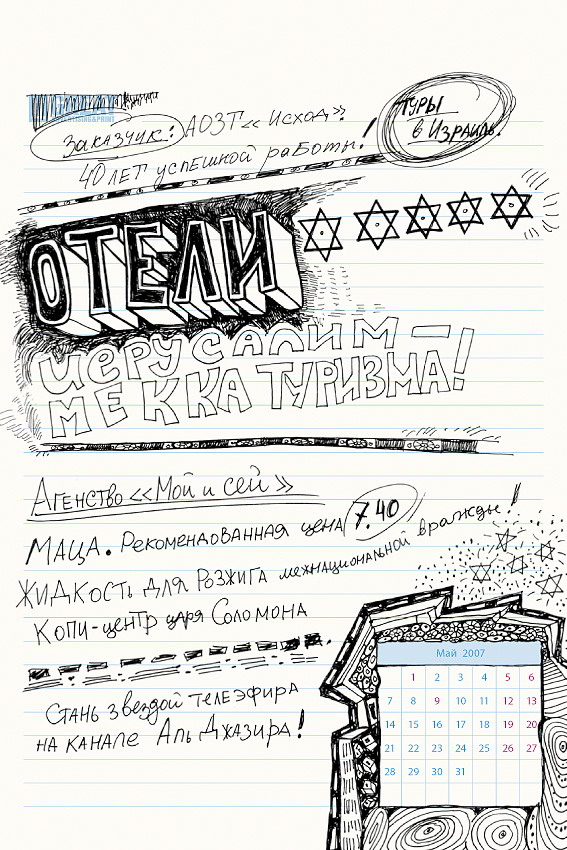 Заказчик: АОЗТ «Исход»
Туры
в Израиль.
40 лет успешной работы!
ОТЕЛИ
Иерусалим –
Мекка туризма!
Агенство «Мой и сей»
Маца. Рекомендованная цена 7.40
Жидкость для розжига межнациональной вражды!
Копи-центр царя Соломона
Стань звездой телеэфира
на канале Аль Джазира!
Май 2007
1 2 3 4 5 6
7 8 9 10 11 12 13
14 15 16 17 18 19 20
21 22 23 24 25 26 27
28 29 30 31